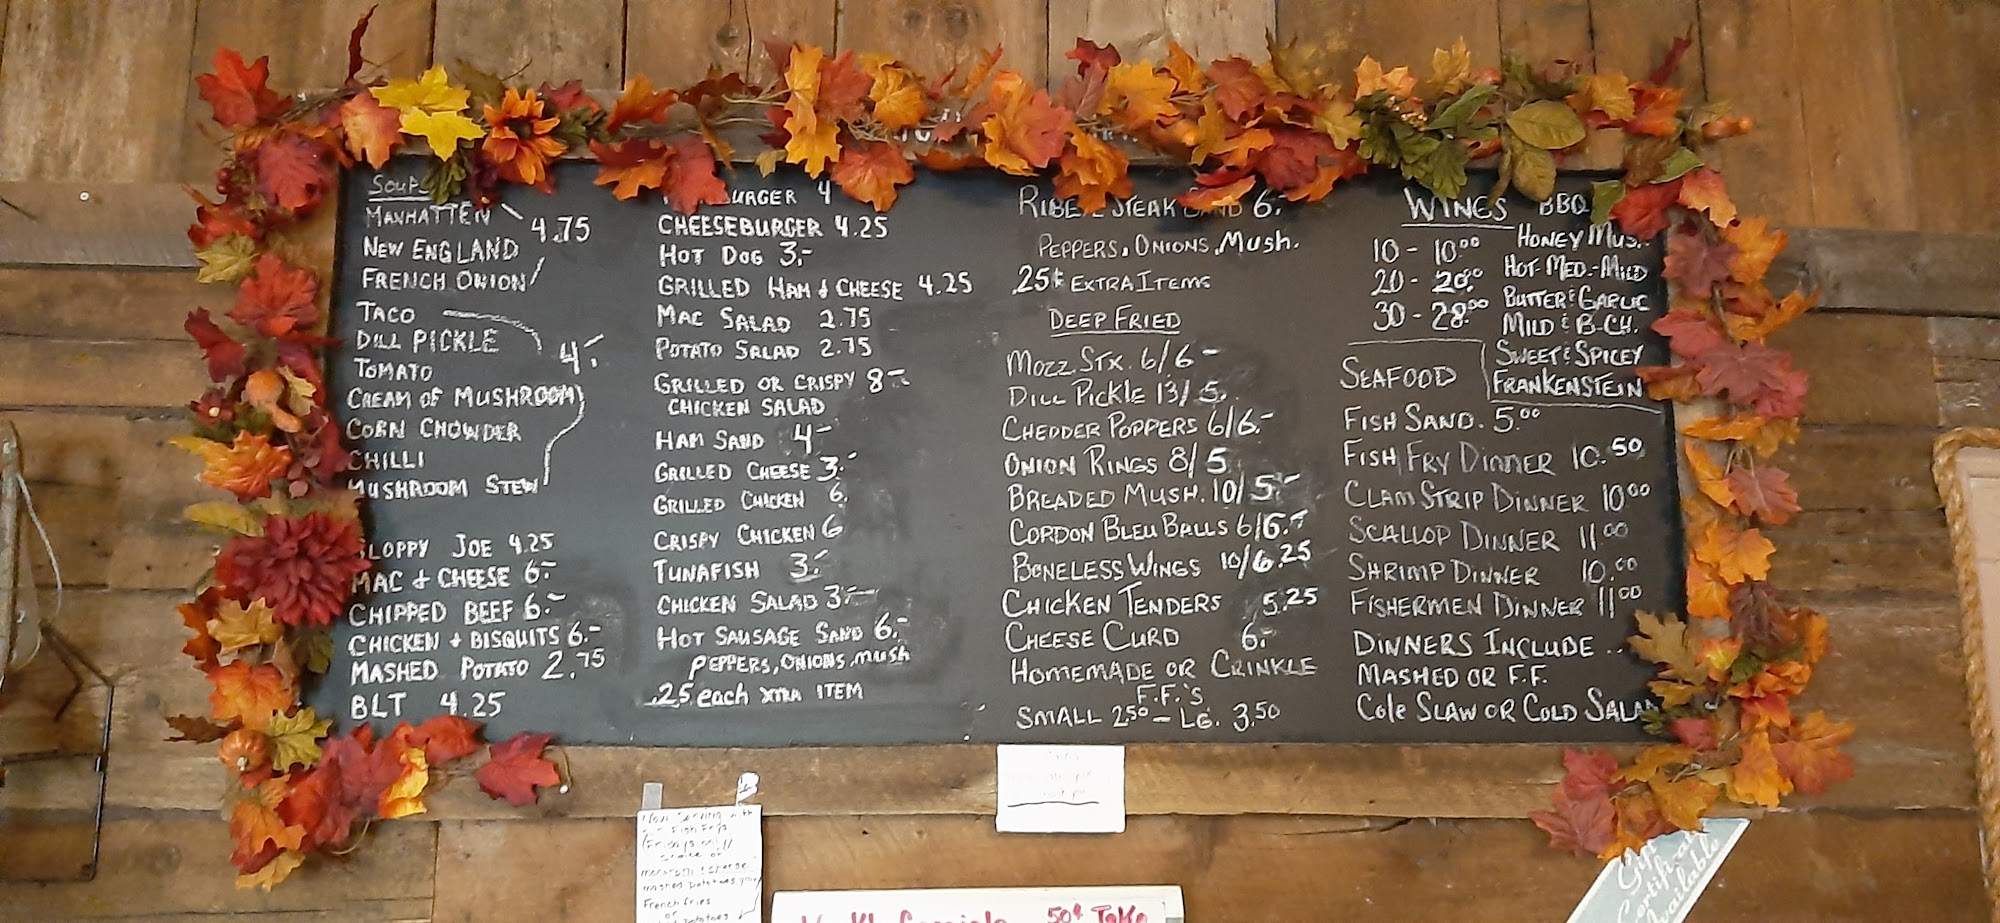 SOUPS
MANHATTEN
4.75
NEW ENGLAND
FRENCH ONION
TACO
DILL PICKLE
4.-
TOMATO
CREAM OF MUSHROOM
CORN CHOWDER
CHILLI
MUSHROOM STEW
SLOPPY JOE 4.25
MAC & CHEESE 6.-
CHIPPED BEEF 6.-
CHICKEN + BISQUITS 6.-
MASHED POTATO 2.75
BLT 4.25
BURGER 4
CHEESEBURGER 4.25
HOT DOG 3.-
GRILLED HAM & CHEESE 4.25
MAC SALAD 2.75
POTATO SALAD 2.75
GRILLED OR CRISPY 8-
CHICKEN SALAD
HAM SAND 4-
GRILLED CHEESE 3.-
GRILLED CHICKEN 6.
CRISPY CHICKEN 6
TUNAFISH 3.-
CHICKEN SALAD 3.-
HOT SAUSAGE SAND 6.-
PEPPERS, ONIONS, MUSH
.25 each XTRA ITEM
STEAK SAND 6.-
PEPPERS, ONIONS, MUSH.
.25¢ EXTRA ITEMS
DEEP FRIED
MOZZ STX. 6/6-
DILL PICKLE 13/5.
CHEDDER POPPERS 6/6.-
ONION RINGS 8/5
BREADED MUSH. 10/5.-
CORDON BLEU BALLS 6/6.-
BONELESS WINGS 10/6.25
CHICKEN TENDERS 5.25
CHEESE CURD 6.-
HOMEMADE OR CRINKLE
F.F.'S
SMALL 2.50 - LG. 3.50
WINGS
10 - 10.00
20 - 20.00
30 - 28.00
BBQ
HONEY MUS.
HOT-MED.-MILD
BUTTER & GARLIC
MILD & B-CH.
SWEET & SPICEY
FRANKENSTEIN
SEAFOOD
FISH SAND. 5.00
FISH FRY DINNER 10.50
CLAM STRIP DINNER 10.00
SCALLOP DINNER 11.00
SHRIMP DINNER 10.00
FISHERMEN DINNER 11.00
DINNERS INCLUDE ..
MASHED OR F.F.
Cole SLAW OR COLD SALAD
Now Serving with
our Fish Frys
(Fridays only)
choice of
macaroni & cheese
mashed potatoes
French fries
or
potatoes
50¢ Take
Gift
Certificates
Available